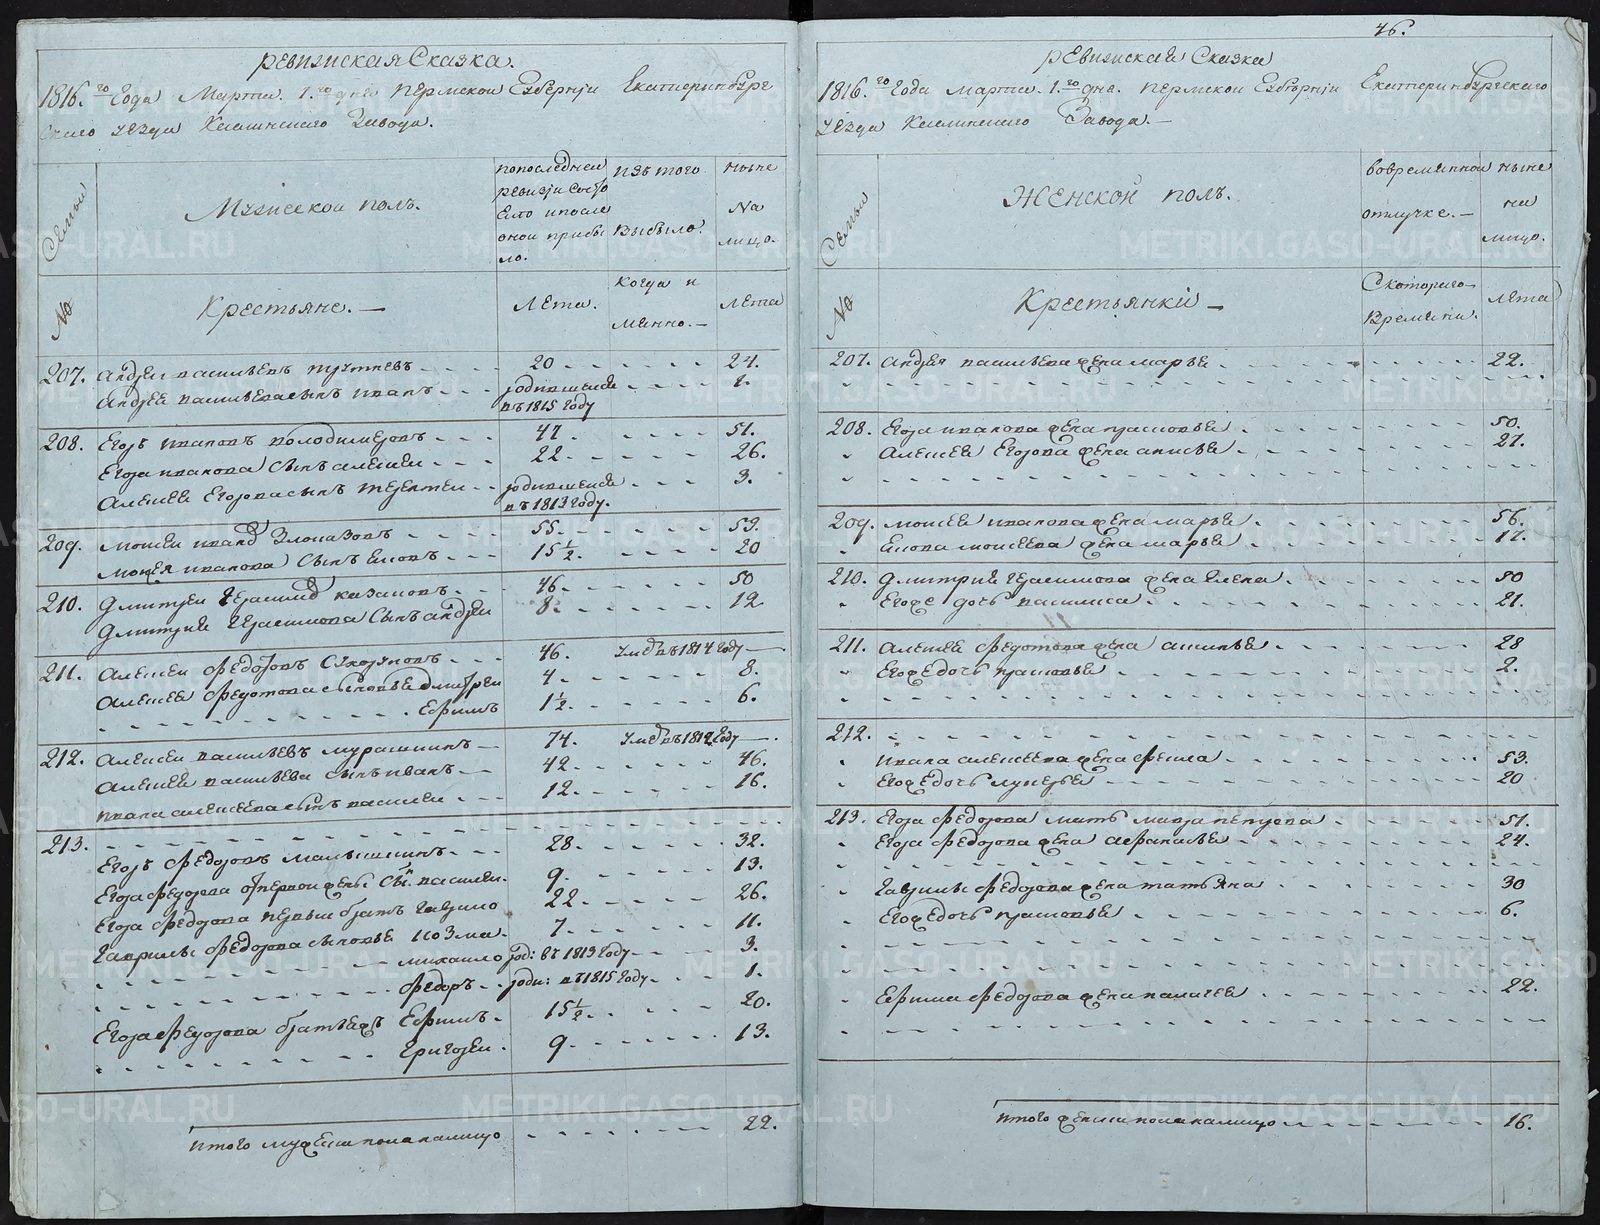 Ревизская Сказка.
1816.го Года Марта 1.го дня Пермской Губернiи Екатеринбург
скаго уезда Каслинскаго Завода.
Семьи
Мужеской полъ.
попоследней
ревизiи состо
яло ипосле
оной прибы
ло.
Изъ того
Выбыло.
Ныне
На
лицо.
№
Крестьяне.
Лета.
Когда и
имянно.
Лета
207. Андреи васильевъ 20 24.
Андрея васильева сынъ иванъ родившеися 1.
въ 1815 году
208. Егоръ ивановъ володимеровъ 47 51.
Егора иванова сынъ алексеи 22 26.
Алексея Егорова сынъ терентеи родившеися 3.
въ 1813 году.
209. Моисеи иванов Злоказовъ 55. 59.
Моисея иванова сынъ Емовъ 15½. 20
210. Дмитреи Герасимов казаковъ 46. 50
Дмитрия Герасимова сынъ андреи 8. 12
211. Алексеи Федотовъ 46. Умре въ 1814 году
Алексея Федотова сыновья дмитреи 4 8.
Ефимъ 1½. 6.
212. Алексеи васильевъ мурашкинъ 74. Умре въ 1812 году
Алексея васильева сынъ иванъ 42 46.
ивана алексеева сынъ василеи 12. 16.
213.
Егоръ Федоровъ малышкинъ 28 32.
Егора Федорова отпервои жены сын василеи. 9. 13.
Егора Федорова первыи братъ Гаврило 22 26.
Гаврилы Федорова сыновья козма. 7. 11.
михаило род: въ 1813 году 3.
Федоръ роди: въ 1815 году 1.
Егора Федорова братья Ефимъ 15½ 20.
Григореи. 9 13.
итого мужеска пола налицо 22.
46.
Ревизская Сказка
1816.го Года Марта 1.го дня. Пермской Губернiи Екатеринбургскаго
уезда Каслинскаго Завода.
Семьи
Женской полъ.
вовременной
отлучке.
ныне
на
лицо.
№
Крестьянкi
Скотораго
Времени.
Лета
207. Андрея васильева жена марья 22.
208. Егора иванова жена прасковья 50.
Алексея Егорова жена анисья 27.
209. Моисея иванова жена марья 56.
моисеева жена марья 17.
210. Дмитрия Герасимова жена Елена 50
Егоже дочь василиса 21.
211. Алексея Федотова жена акилина 28
Егоже дочь прасковья 2.
212.
ивана алексеева жена Фекла 53.
Егоже дочь лукерья 20
213. Егора Федорова мать мавра петрова 51.
Егора Федорова жена 24.
Гаврилы Федорова жена татьяна 30
Егоже дочь прасковья 6.
Ефима Федорова жена 22.
итого женска пола налицо 16.
METRIKI.GASO-URAL.RU